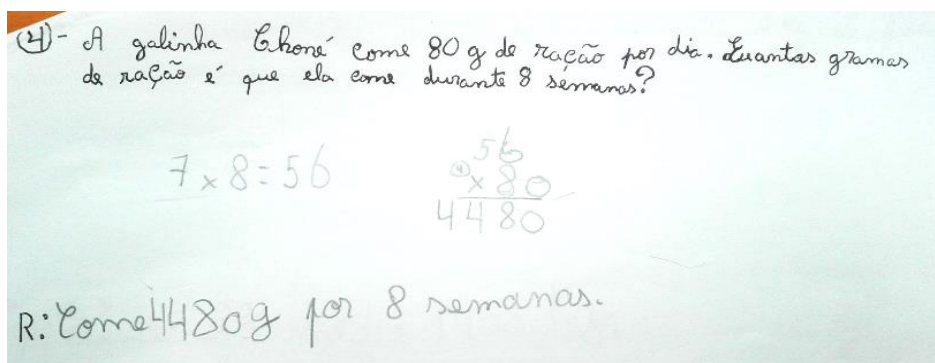 (4)- A galinha Choné come 80 g de ração por dia. Quantas gramas
de ração é que ela come durante 8 semanas?
7 x 8 = 56
56
(4)
x 80
4480
R: Come 4480g por 8 semanas.